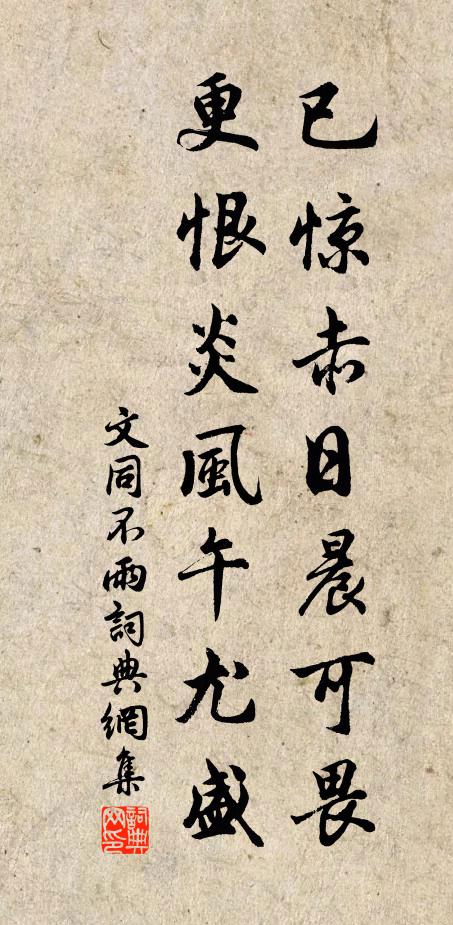 已惊赤日晨可畏
更恨炎風午尤盛
文同不雨詞典網集
詞典网印